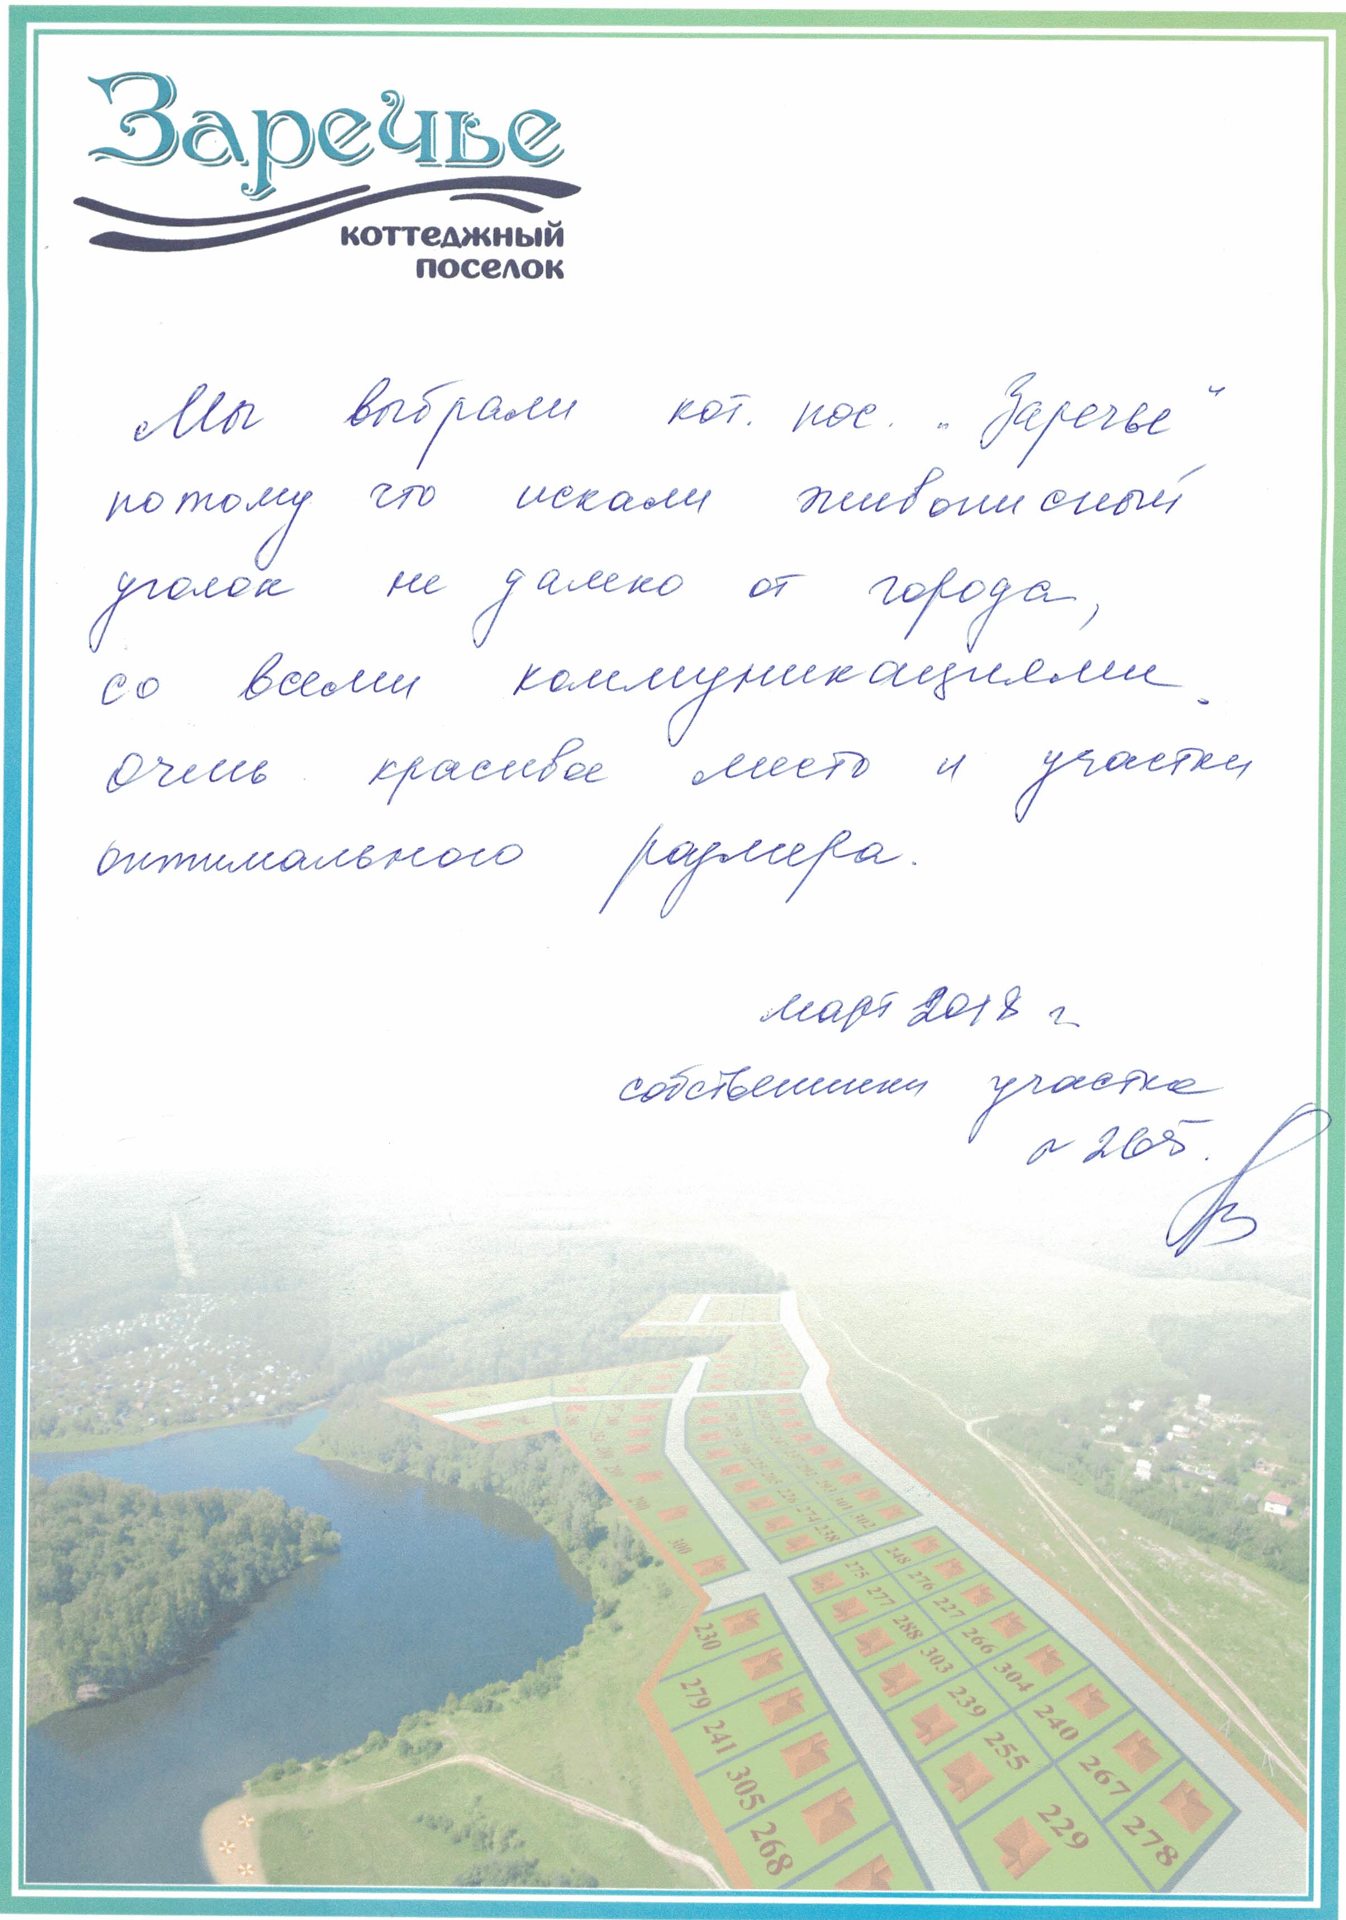 Заречье
коттеджный
поселок
Мы выбрали кот. пос. „Заречье"
потому что искали живописный
уголок не далеко от города,
со всеми коммуникациями.
Очень красивое место и участки
оптимального размера.
март 2018 г
собственники участка
№ 265.
302
300
248
275
276
277
227
288
266
303
304
230
239
240
279
255
267
241
229
278
305
268